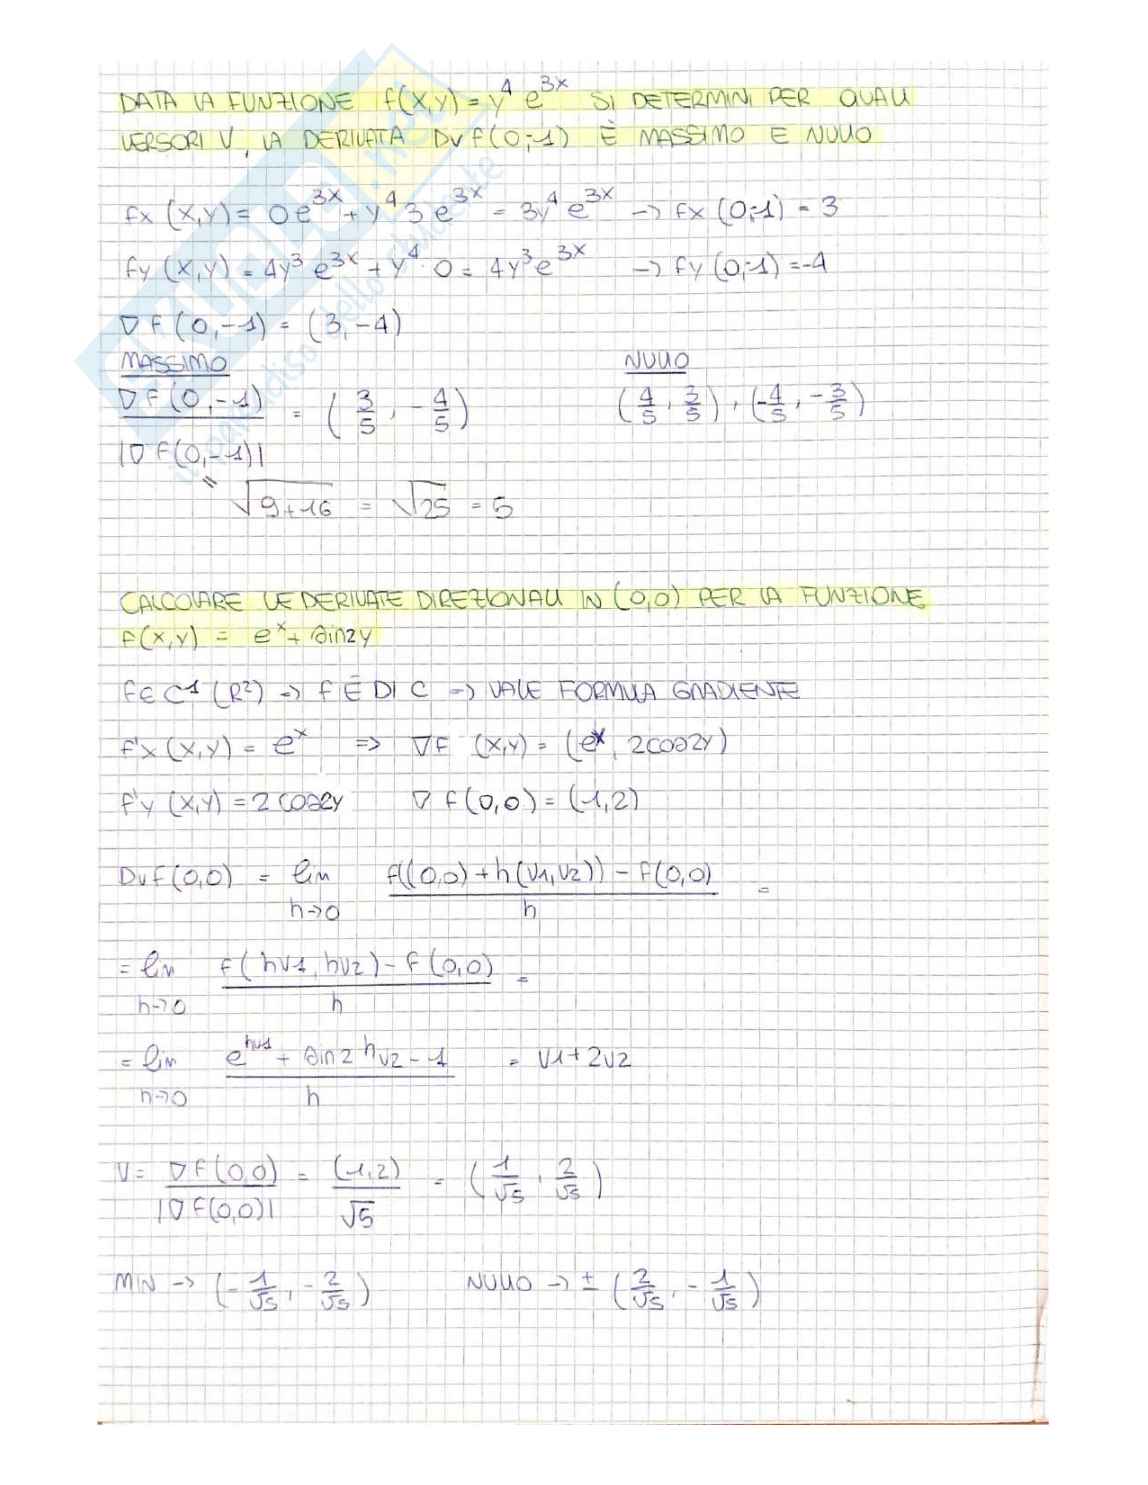 DATA LA FUNZIONE f(x,y) = y⁴ e^3x SI DETERMINI PER QUALI
VERSORI V, LA DERIVATA Dvf(0;-1) È MASSIMO E NULLO
fx (x,y) = 0e^3x + y⁴ 3 e^3x = 3y⁴ e^3x → fx (0;-1) = 3
fy (x,y) = 4y³ e^3x + y⁴ · 0 = 4y³e^3x → fy (0;-1) = -4
∇f(0,-1) = (3,-4)
MASSIMO NULLO
∇f(0,-1) / |∇f(0,-1)| = (3/5, -4/5) (4/5, 3/5), (-4/5, -3/5)
" √9+16 = √25 = 5
CALCOLARE LE DERIVATE DIREZIONALI IN (0,0) PER LA FUNZIONE
f(x,y) = e^x + sin2y
f∈C¹(R²) → f È DI C → VALE FORMULA GRADIENTE
f'x (x,y) = e^x => ∇f (x,y) = (e^x, 2cos2y)
f'y (x,y) = 2cos2y ∇f(0,0) = (1,2)
Dvf(0,0) = lim h→0 f((0,0)+h(v1,v2)) - f(0,0) / h =
= lim h→0 f(hv1, hv2) - f(0,0) / h =
= lim h→0 e^hv1 + sin2hv2 - 1 / h = v1+2v2
V = ∇f(0,0) / |∇f(0,0)| = (1,2) / √5 = (1/√5, 2/√5)
MIN → (-1/√5, -2/√5) NULLO → ± (2/√5, -1/√5)
SKUOLA.net
il paradiso dello studente